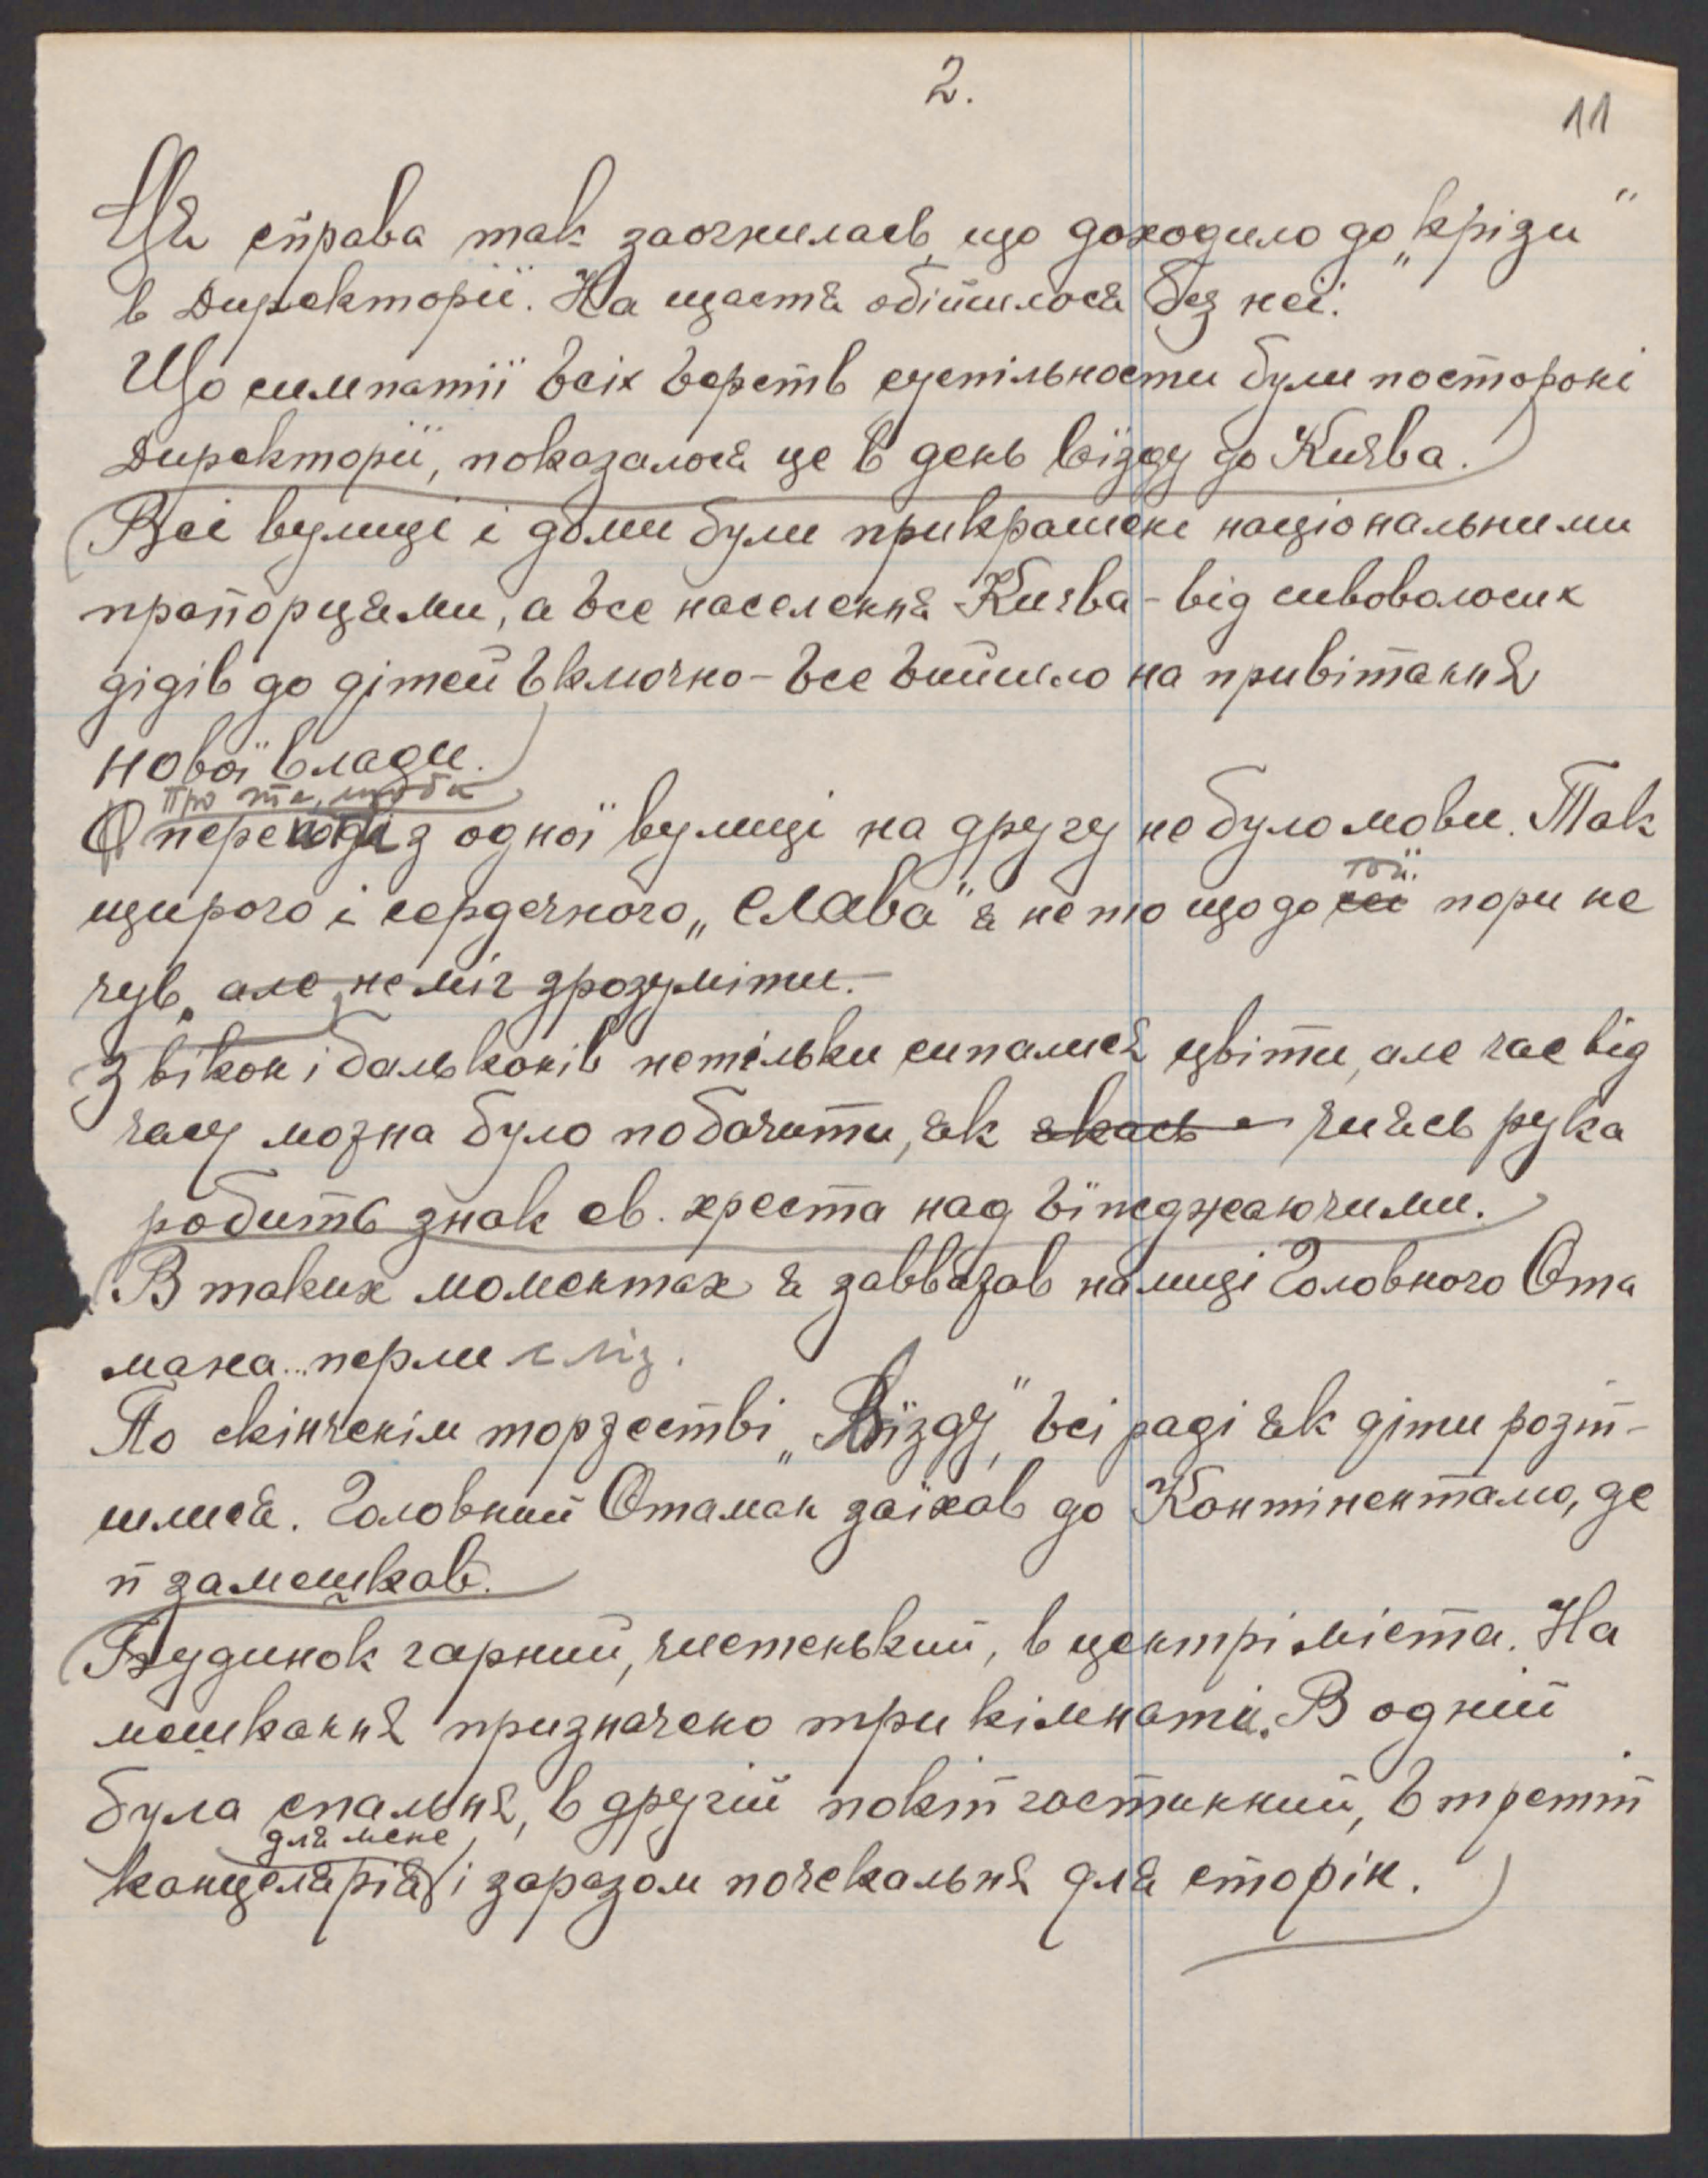 2.
11
Ця справа так заогнилась, що доходило до „крізи"
в Директорії. На щастя обійшлося без неї.
Що симпатії всіх верств суспільности були посторокі
Директорії, показалося це в день вїзду до Києва.
Всі вулиці і доми були прикрашені національними
прапорцями, а все населення Києва - від сивоволосих
дідів до дітей включно - все вийшло на привітання
нової влади.
Про те, щоби
О переході з одної вулиці на другу не було мови. Так
той.
щирого і сердечного „Слава" я не то що до сеї пори не
чув, але не міг зрозуміти.-
З вікон і бальконів нетільки сипалися цвіти, але час від
часу можна було побачити, як якась чиясь рука
робить знак св. хреста над вїжджаючими.
В таких моментах я завважав на лиці Головного Ота
мана... перли сліз.
По скінченім торжестві „Вїзду", всі раді як діти розій-
шлися. Головний Отаман заїхав до Контіненталю, де
й замешкав.
Будинок гарний, чистенький, в центрі міста. На
мешкання призначено три кімнаті. В одній
була спальня, в другій покій гостинний, в третій
для мене
канцелярія і заразом почекальня для сторін.